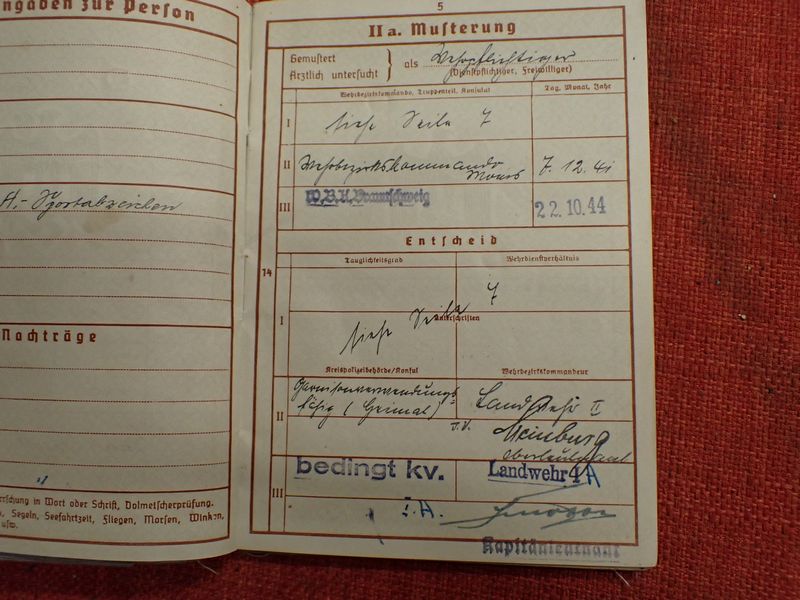 ngaben zur Person
A.- Sportabzeichen
Nachträge
rrschung in Wort oder Schrift, Dolmetscherprüfung.
, Segeln, Seefahrtzeit, Fliegen, Morsen, Winken,
usw.
5
IIa. Musterung
Gemustert
Ärztlich untersucht } als Wehrpflichtiger
(Dienstpflichtiger, Freiwilliger)
Wehrbezirkskommando, Truppenteil, Konsulat
Tag, Monat, Jahr
I siehe Seite 7
II Wehrbezirkskommando Moers 7. 12. 41
III W.B.K. Braunschweig 22.10.44
Entscheid
14
Tauglichkeitsgrad
Wehrdienstverhältnis
I siehe Seite 7
Unterschriften
Kreispolizeibehörde/Konsul
Wehrbezirkskommandeur
II Garnisonverwendungs-
fähig (Heimat)
Landwehr II
I.V.
Oberleutnant
III bedingt kv.
Landwehr
I.A.
Kapitänleutnant